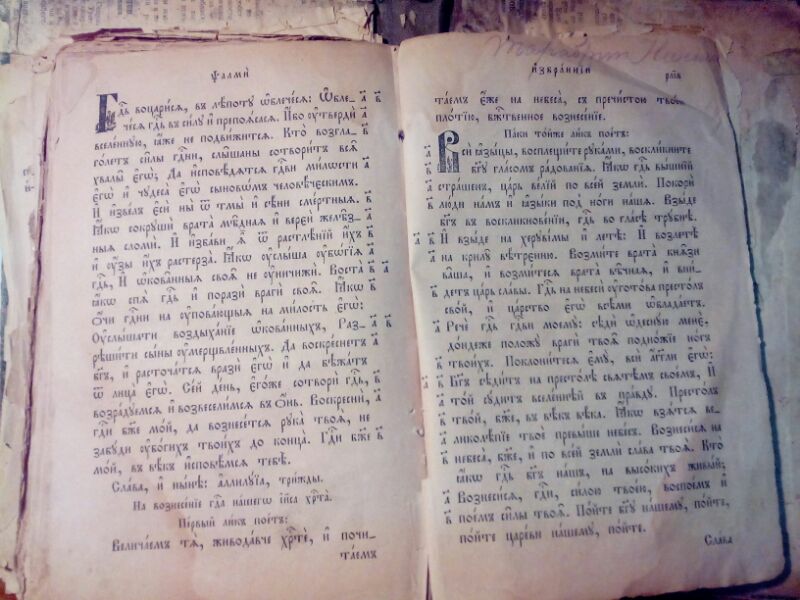 Ѱалмѝ
Гдⷭ҇ь воцари́сѧ, въ лѣ́потꙋ ѡ҆блече́сѧ: Ѡ҆бле-
че́сѧ гдⷭ҇ь въ си́лꙋ и҆ препоѧ́сасѧ. И҆́бо ᲂу҆твердѝ
вселе́ннꙋю, ꙗ҆́же не подви́житсѧ. Кто̀ возгла-
го́летъ си̑лы гдⷭ҇ни, слы̑шаны сотвори́тъ всѧ̑
хвалы̑ є҆гѡ̀; Да и҆сповѣ́дѧтсѧ гдⷭ҇ви ми́лѡсти
є҆гѡ̀ и҆ чꙋдеса̀ є҆гѡ̀ сыновѡ́мъ человѣ́ческимъ.
И҆ и҆зве́лъ є҆сѝ ны̀ ѿ тмы̀ и҆ сѣ́ни сме́ртныѧ.
Ꙗ҆́кѡ сокрꙋшѝ врата̀ мѣ̑днаѧ и҆ верєѝ желѣ̑з-
ныѧ сломѝ. И҆ и҆зба́ви ѧ҆̀ ѿ растлѣ́нїй и҆́хъ
и҆ ᲂу҆́зы и҆́хъ растерза̀. Ꙗ҆́кѡ ᲂу҆слы́ша ᲂу҆бѡ́гїѧ
гдⷭ҇ь, И҆ ѡ҆кова̑нныѧ своѧ̑ не ᲂу҆ничижѝ. Воста̀
ꙗ҆́кѡ спѧ̀ гдⷭ҇ь и҆ поразѝ врагѝ своѧ̑. Ꙗ҆́кѡ
ѻ҆́чи гдⷭ҇ни на ᲂу҆пова́ющыѧ на ми́лость є҆гѡ̀:
Оу҆слы́шати воздыха́нїе ѡ҆кова́нныхъ, Раз-
рѣши́ти сы́ны ᲂу҆мерщвле́нныхъ. Да воскре́снетъ
бг҃ъ, и҆ расточа́тсѧ вразѝ є҆гѡ̀ и҆ да бѣжа́тъ
ѿ лица̀ є҆гѡ̀. Се́й де́нь, є҆го́же сотворѝ гдⷭ҇ь,
возра́дꙋемсѧ и҆ возвесели́мсѧ въ ѻ҆́нь. Воскреснѝ,
гдⷭ҇и бж҃е мо́й, да вознесе́тсѧ рꙋка̀ твоѧ̀, не
забꙋ́ди ᲂу҆бо́гихъ твои́хъ до конца̀. Гдⷭ҇и бж҃е
мо́й, въ вѣ́къ и҆сповѣ́мсѧ тебѣ̀.
Сла́ва, и҆ ны́нѣ: а҆ллилꙋ́їа, три́жды.
На вознесе́нїе гдⷭ҇а на́шегѡ і҆и҃са хрⷭ҇та̀.
Пе́рвый ли́къ пое́тъ:
Велича́емъ тѧ̀, живода́вче хрⷭ҇тѐ, и҆ почи-
та́емъ
И҆збра́ннїи
та́емъ є҆́же на небеса̀, съ пречи́стою твое́ю
пло́тїю, бж҃е́ственное вознесе́нїе.
Па́ки то́йже ли́къ пое́тъ:
Всѝ ꙗ҆зы́цы, восплещи́те рꙋка́ми, воскли́кните
бг҃ꙋ гла́сомъ ра́дованїѧ. Ꙗ҆́кѡ гдⷭ҇ь вы́шнїй
стра́шенъ, ца́рь ве́лїй по все́й землѝ. Покорѝ
лю́ди на́мъ и҆ ꙗ҆зы́ки под̾ но́ги на́шѧ. Взы́де
бг҃ъ въ воскликнове́нїи, гдⷭ҇ь во гла́сѣ трꙋ́бнѣ.
И҆ взы́де на херꙋви̑мы и҆ летѣ̀: И҆ возлетѣ̀
на крилꙋ̀ вѣ́трєннюю. Возми́те врата̀ кнѧ̑зи
ва́ша, и҆ возми́тесѧ врата̀ вѣ̑чнаѧ, и҆ вни́-
детъ ца́рь сла́вы. Гдⷭ҇ь на небесѝ ᲂу҆гото́ва престо́лъ
сво́й, и҆ ца́рство є҆гѡ̀ всѣ́ми ѡ҆блада́етъ.
Речѐ гдⷭ҇ь гдⷭ҇ви моемꙋ̀: сѣдѝ ѡ҆деснꙋ́ю менє̀,
до́ндеже положꙋ̀ врагѝ твоѧ̑ подно́жїе но́гъ
твои́хъ. Поклони́тесѧ є҆мꙋ̀, всѝ а҆́гг҃ли є҆гѡ̀:
Бг҃ъ сѣди́тъ на престо́лѣ свѧтѣ́мъ свое́мъ, И҆
то́й сꙋ́дитъ вселе́ннѣй въ пра́вдꙋ. Престо́лъ
тво́й, бж҃е, въ вѣ́къ вѣ́ка. Ꙗ҆́кѡ взѧ́тсѧ ве-
ликолѣ́пїе твоѐ превы́ше небе́съ. Вознеси́сѧ на
небеса̀, бж҃е, и҆ по все́й землѝ сла́ва твоѧ̀. Кто̀
ꙗ҆́кѡ гдⷭ҇ь бг҃ъ на́шъ, на высо́кихъ живы́й;
Вознеси́сѧ, гдⷭ҇и, си́лою твое́ю, воспое́мъ и҆
пое́мъ си̑лы твоѧ̑. По́йте бг҃ꙋ на́шемꙋ, по́йте,
по́йте царе́ви на́шемꙋ, по́йте.
Сла́ва